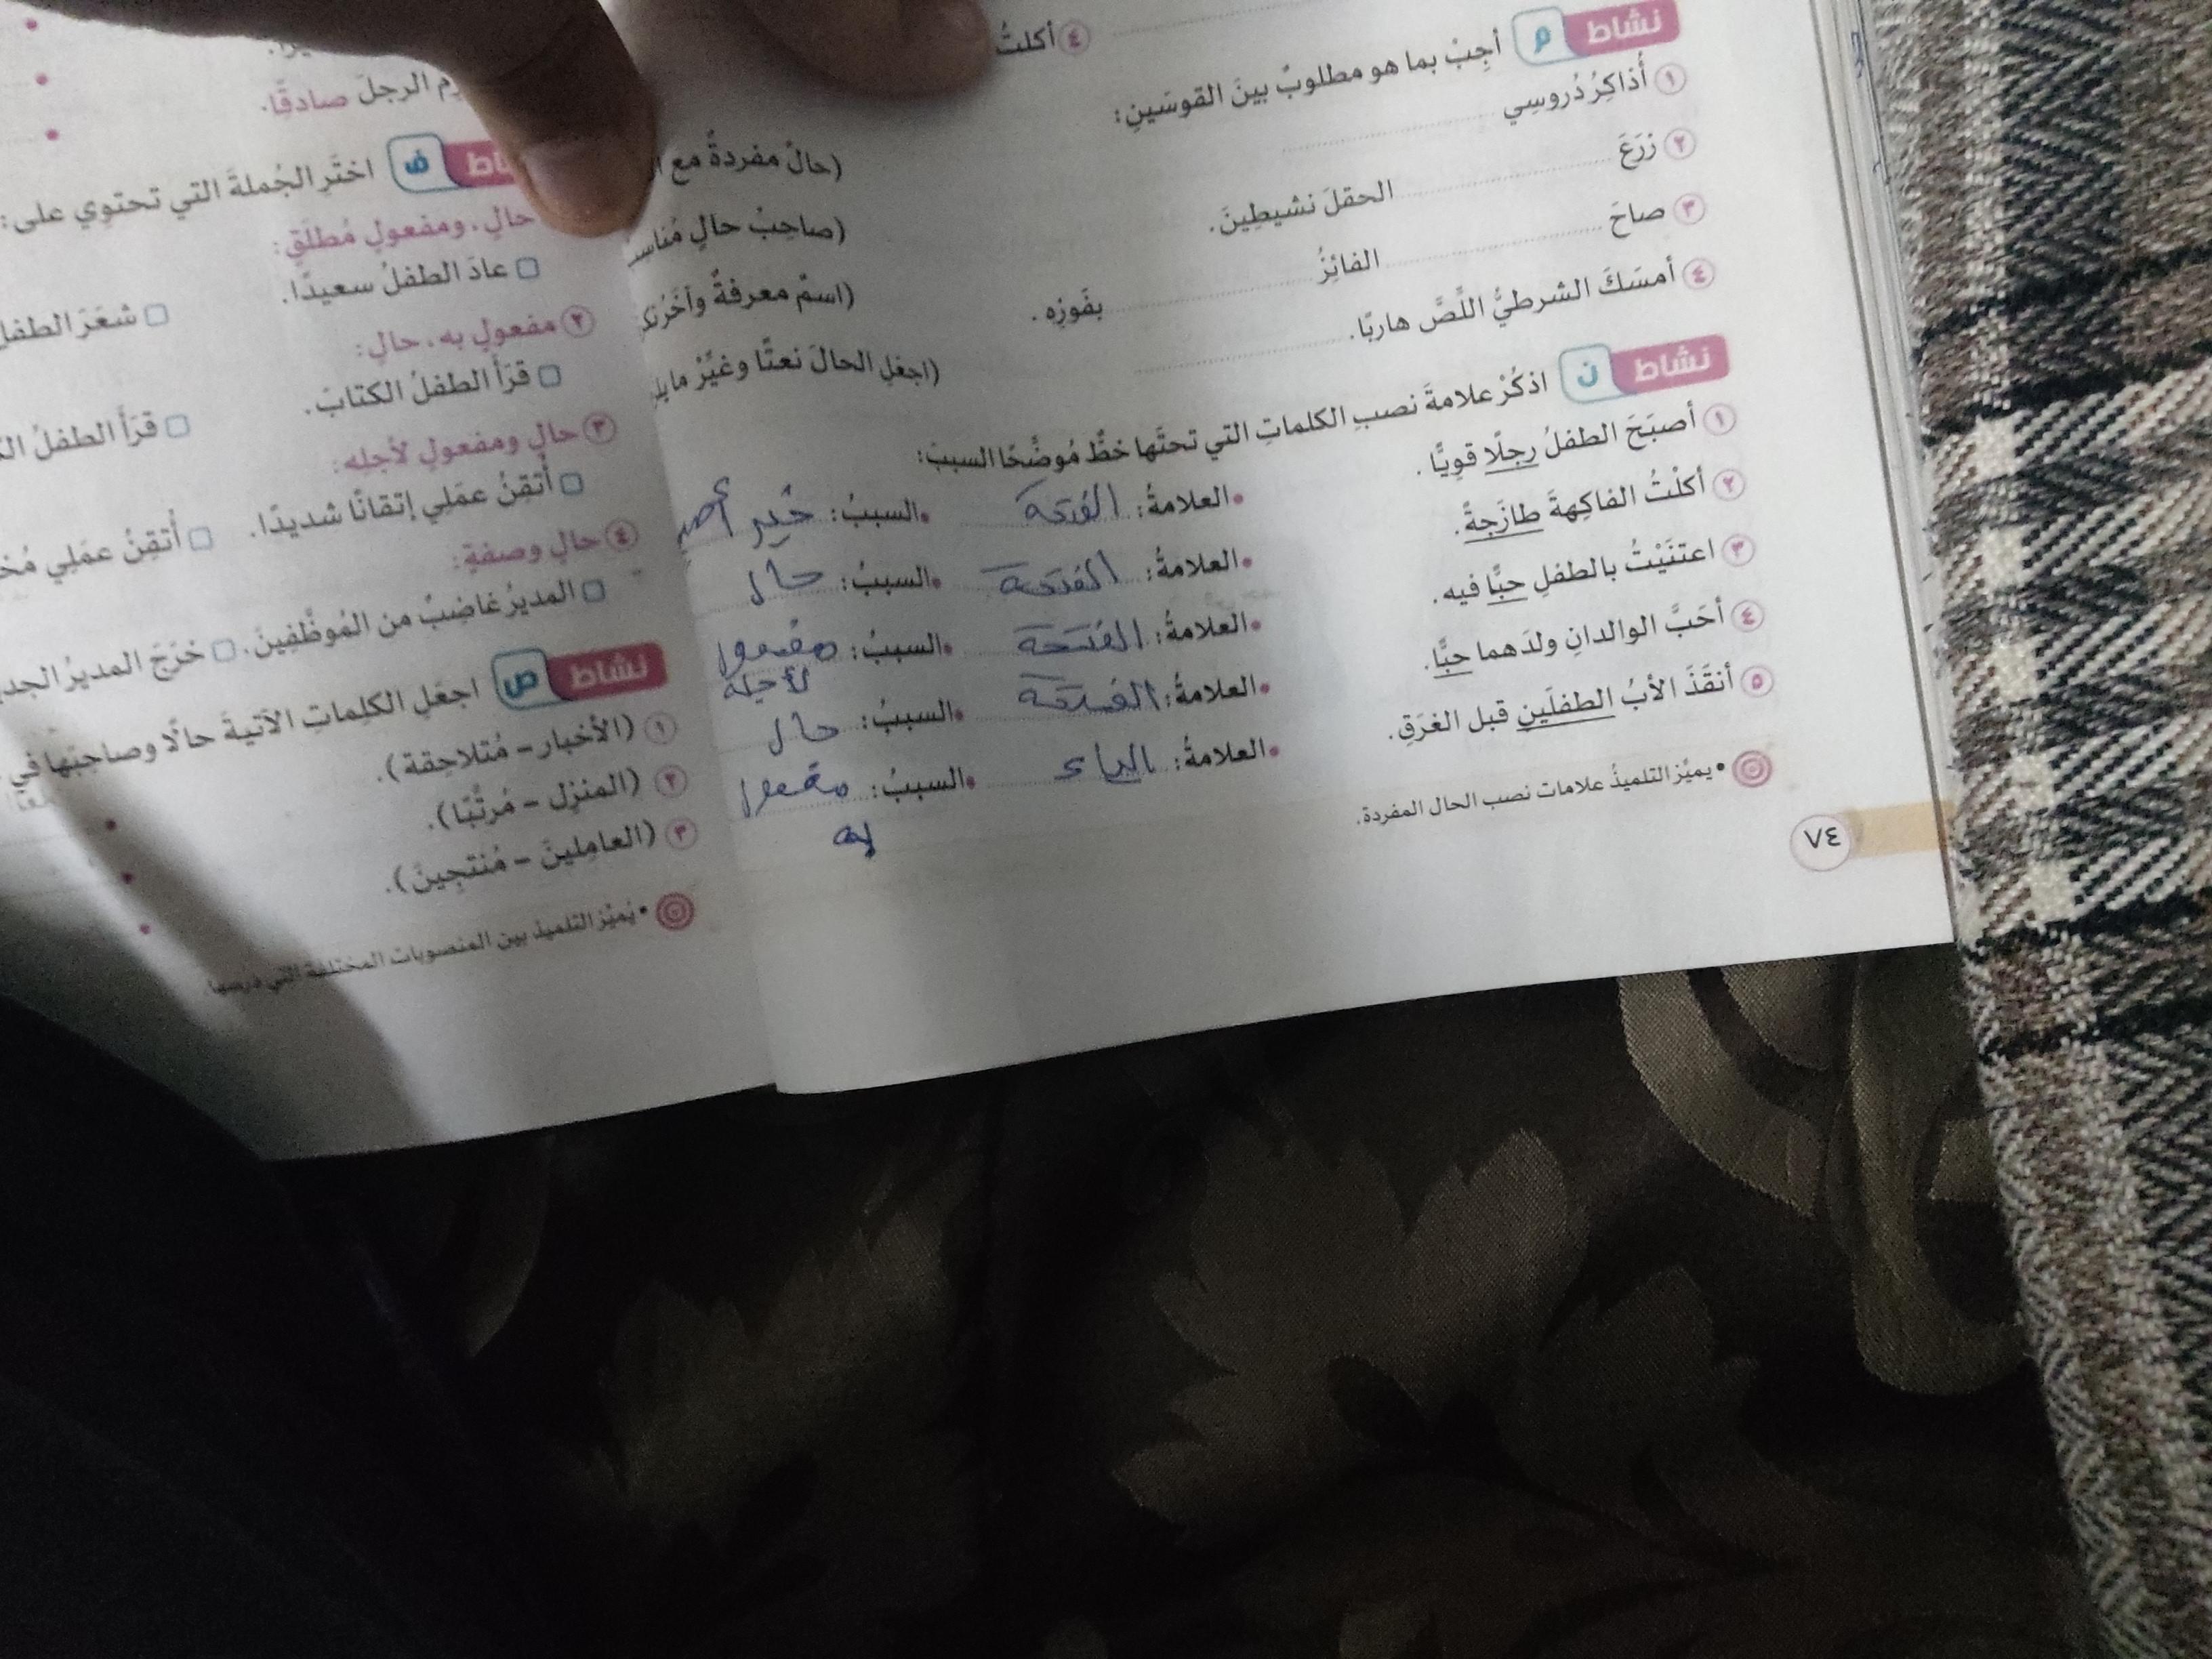 ④ أكلتُ
نشاط م أجِبْ بما هو مطلوبٌ بينَ القوسَينِ:
١ أُذاكِرُ دُروسِي (حالٌ مفردةٌ مع
٢ زرَعَ الحقلَ نشيطِينَ. (صاحِبُ حالٍ
٣ صاحَ الفائِزُ بفَوزِه. (اسمٌ معرفةٌ
٤ أمسَكَ الشرطيُّ اللِّصَّ هاربًا. (اجعَلِ الحالَ نعتًا وغيِّرْ
نشاط ن اذكُرْ علامةَ نصبِ الكلماتِ التي تحتَها خطٌّ مُوضِّحًا السببَ:
١ أصبَحَ الطفلُ رجلًا قويًّا. • العلامةُ: الفتحة • السببُ: خبر
٢ أكلْتُ الفاكِهةَ طازَجةً. • العلامةُ: الفتحة • السببُ: حال
٣ اعتنَيْتُ بالطفلِ حبًّا فيه. • العلامةُ: الفتحة • السببُ: مفعول
لأجله
٤ أحَبَّ الوالدانِ ولدَهما حبًّا. • العلامةُ: الفتحة • السببُ: حال
٥ أنقَذَ الأبُ الطفلَينِ قبل الغرَقِ. • العلامةُ: الياء • السببُ: مفعول
به
• يميِّز التلميذُ علامات نصب الحال المفردة.
٧٤
الرجلَ صادقًا.
ف اختَرِ الجُملةَ التي تحتوِي على:
حالٍ، ومفعولٍ مُطلَقٍ:
عادَ الطفلُ سعيدًا. شعَرَ
٢ مفعولٍ به، حالٍ:
قرَأَ الطفلُ الكتابَ. قرَأَ الطفلُ
٣ حالٍ ومفعولٍ لأجله:
أُتقِنُ عمَلِي إتقانًا شديدًا. أُتقِنُ عمَلِي
٤ حالٍ وصفةٍ:
المديرُ غاضِبٌ من المُوظَّفِينَ. خرَجَ المديرُ
نشاط ص اجعَلِ الكلِماتِ الآتيةَ حالًا وصاحِبَها في
١ (الأخبار - مُتلاحِقة).
٢ (المنزِل - مُرتَّبًا).
٣ (العامِلينَ - مُنتجِينَ).
• يُميِّز التلميذ بين المنصوبات المختلفة التي درسها.